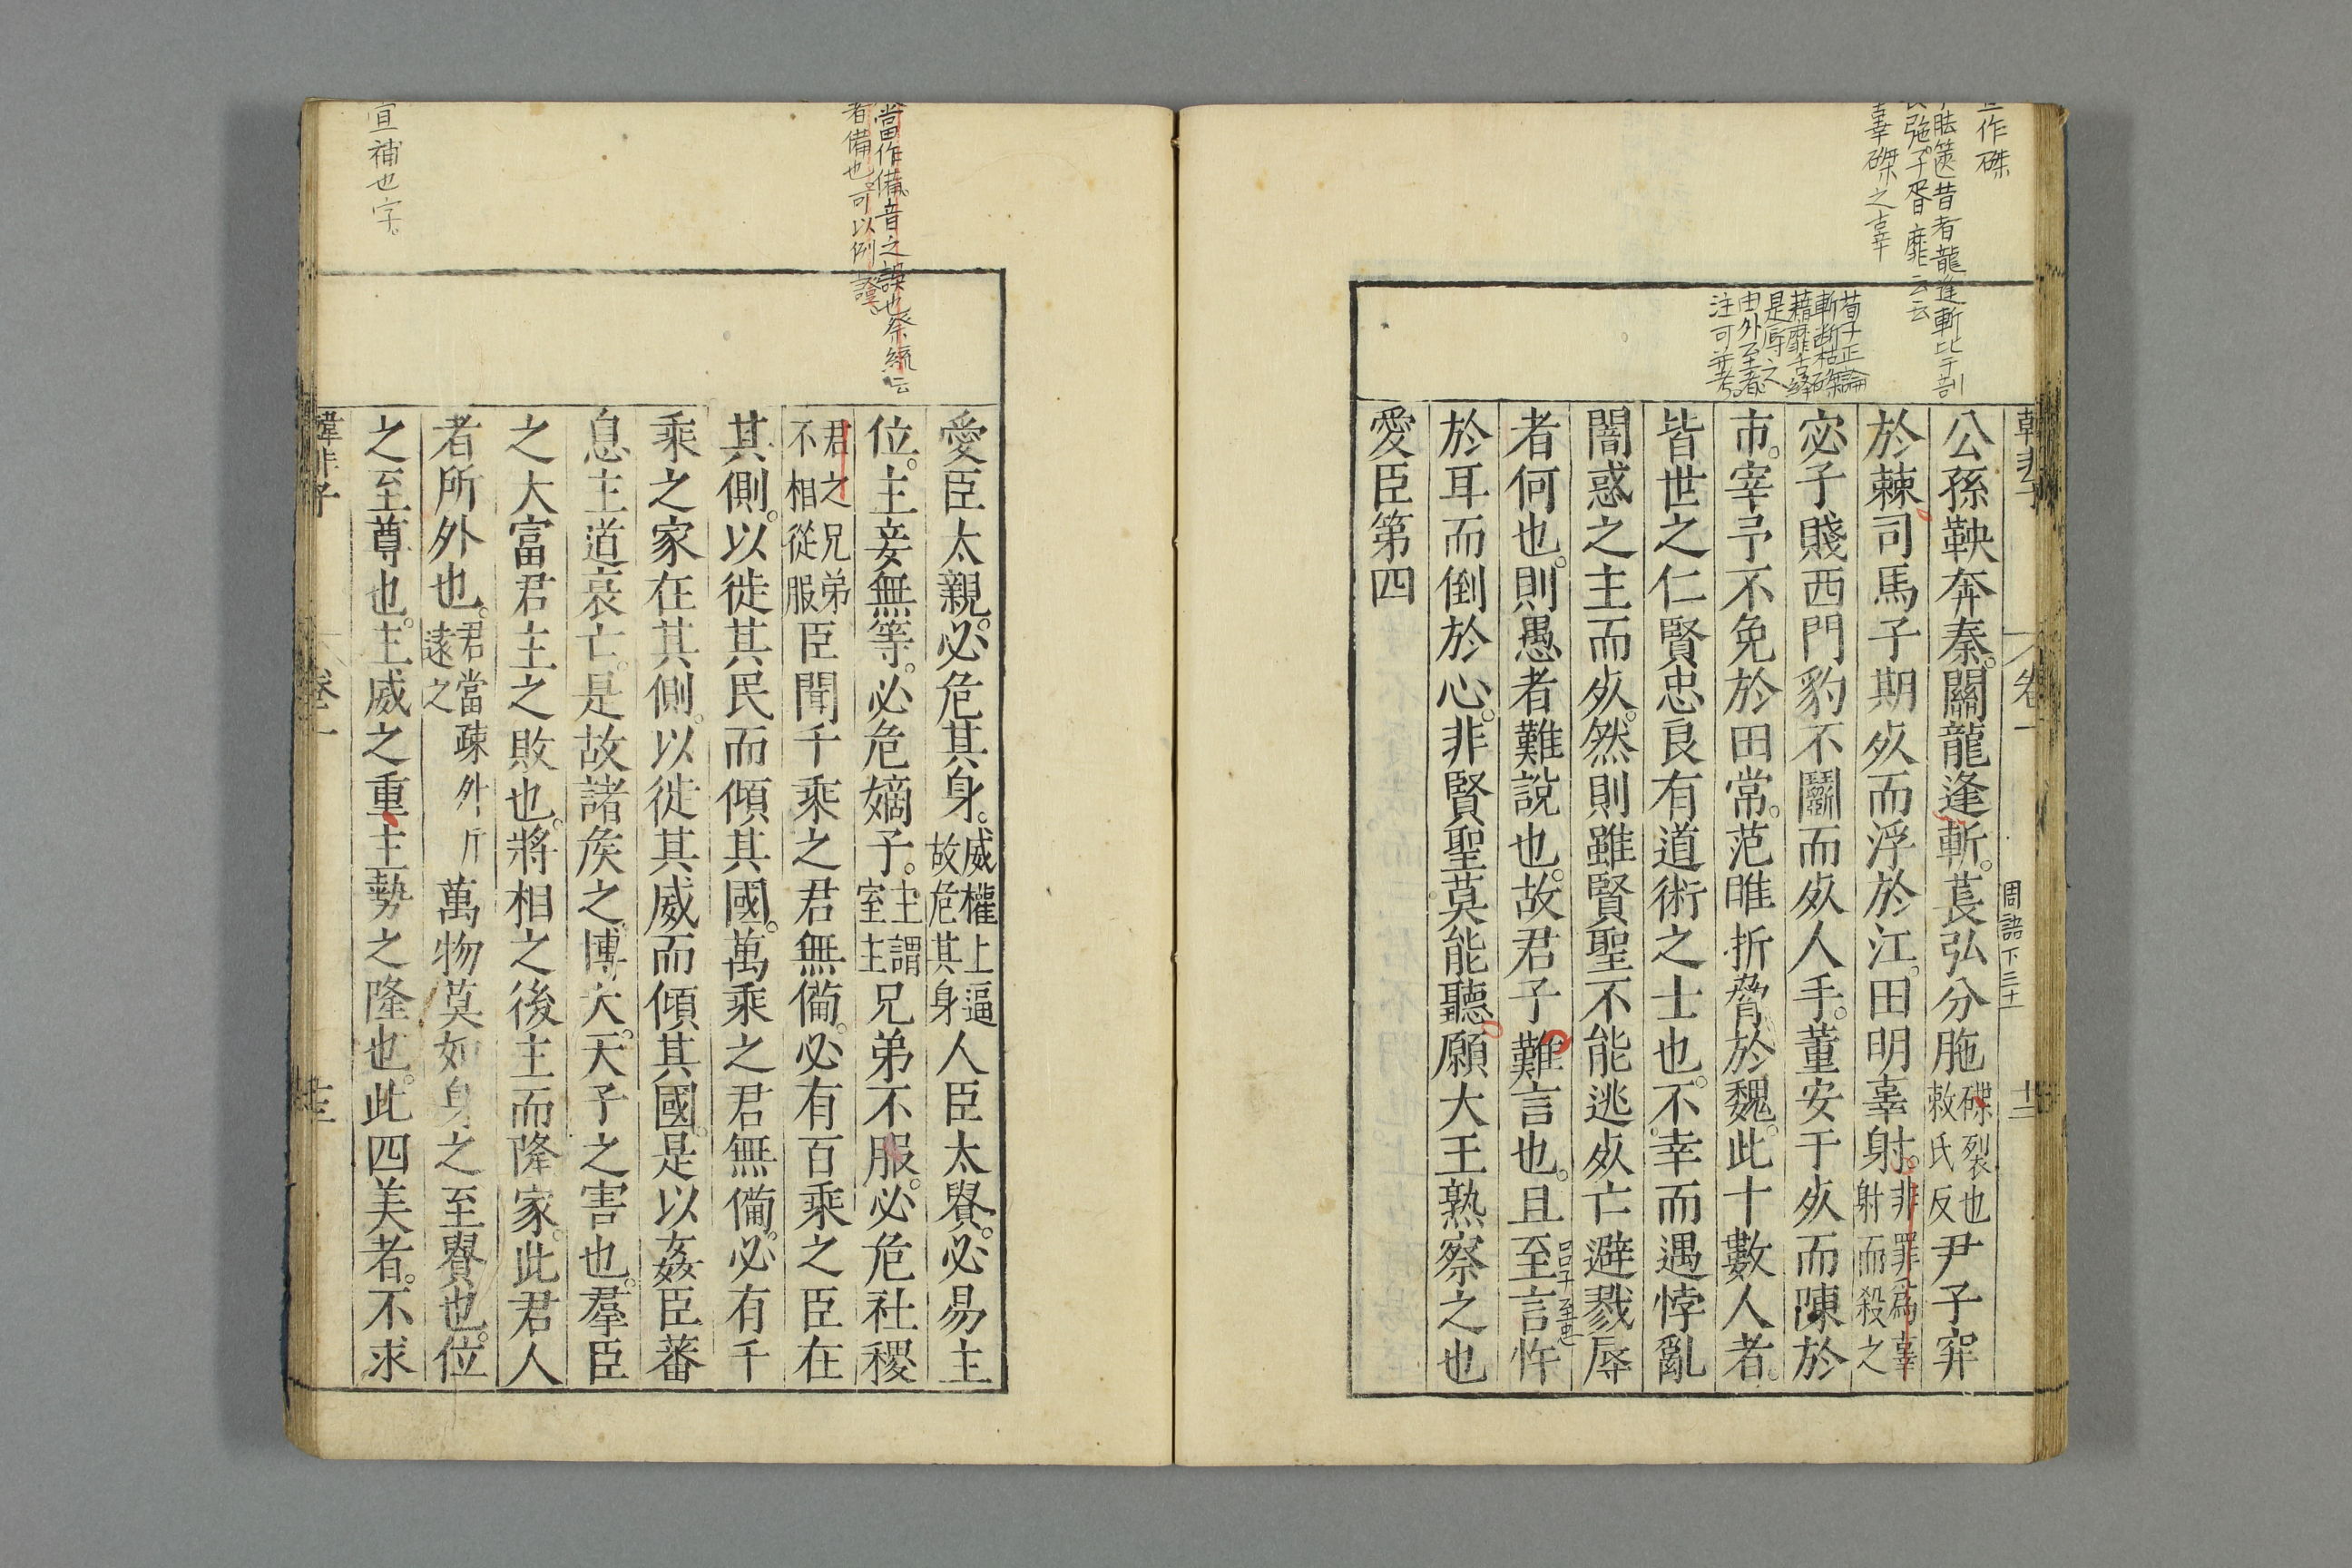 韓非子
卷一
十二
周語下三十
公孫鞅奔秦。關龍逢斬。萇弘分胣磔裂也敕氏反尹子穽
於棘司馬子期㱙而浮於江。田明辜射。非罪爲辜射而殺之
宓子賤西門豹不鬭而㱙人手。董安于㱙而陳於
市。宰予不免於田常。范睢折脅於魏。此十數人者。
皆世之仁賢忠良有道術之士也。不幸而遇悖亂
闇惑之主而㱙。然則雖賢聖不能逃㱙亡避戮辱
者何也。則愚者難說也。故君子難言也。且至言忤
於耳而倒於心。非賢聖莫能聽願大王熟察之也
愛臣第四
作磔
胠篋昔者龍逢斬比干剖
萇弘胣子胥靡云云
辜磔之辜
荀子正論
斬斷枯磔
藉靡舌縪
是辱之
由外至者
注可并考
愛臣太親。必危其身。威權上逼故危其身人臣太貴。必易主
位。主妾無等。必危嫡子。主謂室主兄弟不服。必危社稷
君之兄弟不相從服臣聞千乘之君無備。必有百乘之臣在
其側。以徙其民而傾其國。萬乘之君無備。必有千
乘之家在其側。以徙其威而傾其國。是以姦臣蕃
息主道衰亡。是故諸矦之博大。天子之害也。羣臣
之太富君主之敗也。將相之後主而隆家。此君人
者所外也。君當疎外斥遠之萬物莫如身之至貴也。位
之至尊也。主威之重主勢之隆也。此四美者。不求
當作備音之誤也祭統云
者備也可以例證
宜補也字。
韓非子
卷一
十三